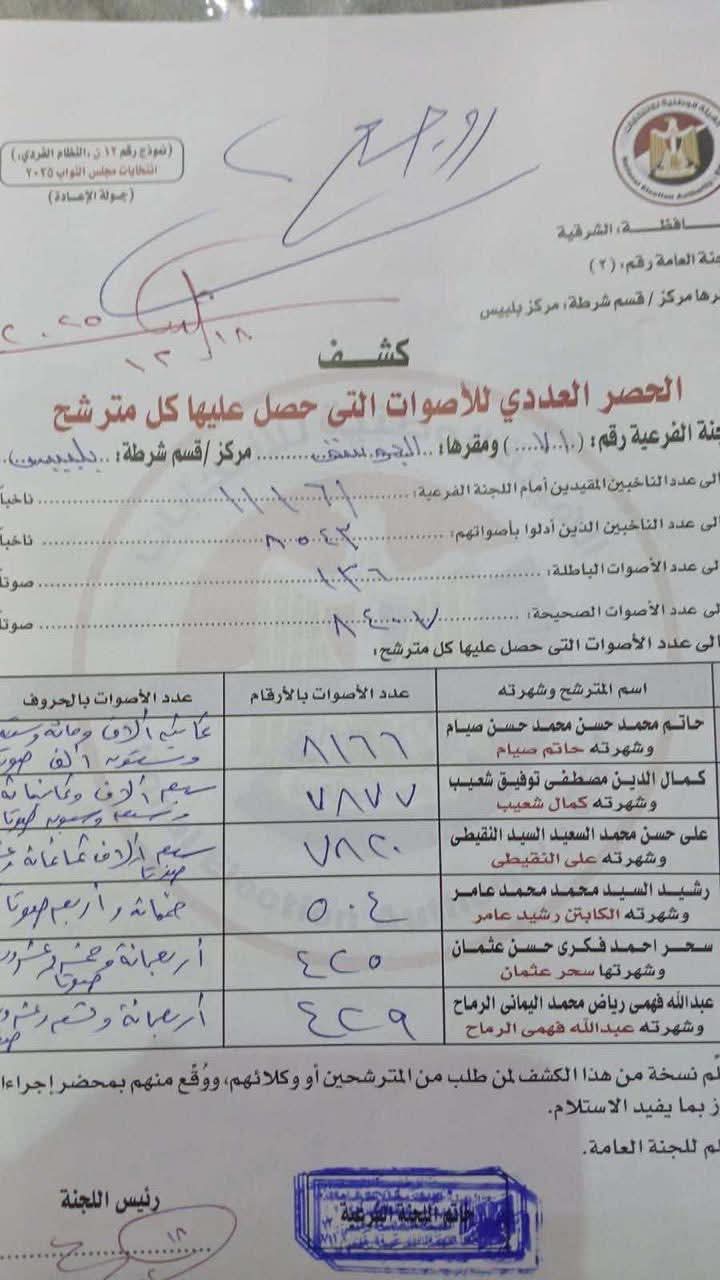 روجع
(نموذج رقم ١٢ ن ,النظام الفردي,)
انتخابات مجلس النواب ٢٠٢٥
(جولة الإعادة)
National Election Authority
ـافظـة: الشرقية
جنة العامة رقم: (٢)
رها مركز / قسم شرطة: مركز بلبيس
١٨ / ١٢
٢٠٢٥
كشف
الحصر العددي للأصوات التى حصل عليها كل مترشح
جنة الفرعية رقم: ( ٧١٠ ) ومقرها: مركز / قسم شرطة: بلبيس
الى عدد الناخبين المقيدين أمام اللجنة الفرعية: ناخباً
الى عدد الناخبين الذين أدلوا بأصواتهم: ٨٥٤٣ ناخباً
الى عدد الأصوات الباطلة: ١٣٦ صوتاً
الى عدد الأصوات الصحيحة: ٨٤٠٧ صوتاً
الى عدد الأصوات التى حصل عليها كل مترشح:
اسم المترشح وشهرته عدد الأصوات بالأرقام عدد الأصوات بالحروف
حاتم محمد حسن محمد حسن صيام
وشهرته حاتم صيام
٨١٦٦
ثمانية آلاف ومائة وستة
وستون ألف صوتا
كمال الدين مصطفى توفيق شعيب
وشهرته كمال شعيب
٧٨٧٧
سبعة آلاف وثمانمائة
وسبعة وسبعون صوتا
على حسن محمد السعيد السيد النقيطى
وشهرته على النقيطى
٧٨٢٠
سبعة آلاف ثمانمائة
صوتا
رشيد السيد محمد محمد عامر
وشهرته الكابتن رشيد عامر
٥٠٤
خمسمائة وأربعة صوتا
سحر احمد فكرى حسن عثمان
وشهرتها سحر عثمان
٤٢٥
أربعمائة وخمسة وعشرون
صوتا
عبدالله فهمى رياض محمد اليمانى الرماح
وشهرته عبدالله فهمى الرماح
٤٢٩
أربعمائة وتسعة
لّم نسخة من هذا الكشف لمن طلب من المترشحين أو وكلائهم، ووُقّع منهم بمحضر إجراءا
ز بما يفيد الاستلام.
لم للجنة العامة.
رئيس اللجنة
خاتم اللجنة الفرعية
١٨